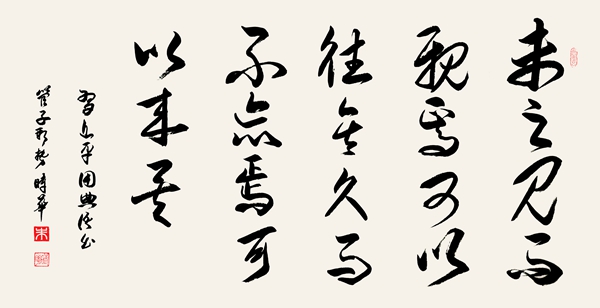 未之見而
親焉可以
往矣久而
不忘焉可
以来矣
習近平用典语出
管子形势時華